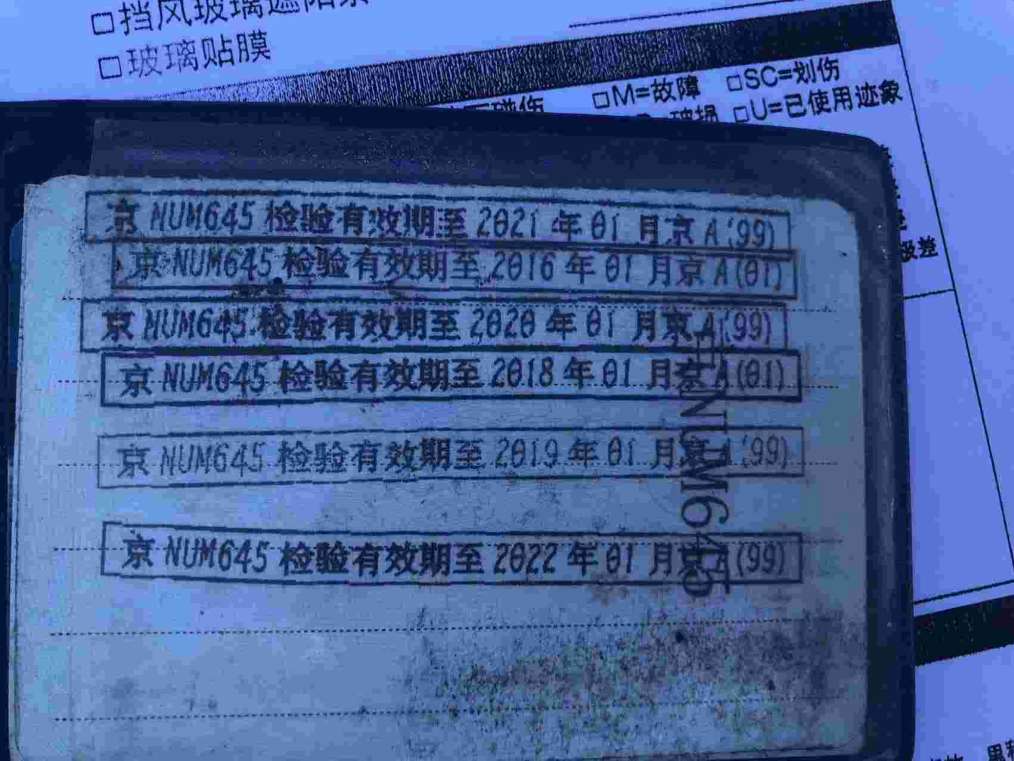 □挡风玻璃遮阳条
□玻璃贴膜
□M=故障 □SC=划伤
破损 □U=已使用迹象
极差
京NUM645 检验有效期至2021年01月京A(99)
京NUM645 检验有效期至2016年01月京A(01)
京NUM645 检验有效期至2020年01月京A(99)
京NUM645 检验有效期至2018年01月京A(01)
京NUM645 检验有效期至2019年01月京A(99)
京NUM645 检验有效期至2022年01月京A(99)
京NUM645